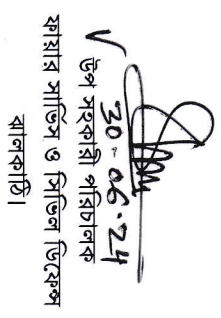 30-06-24
উপ সহকারী পরিচালক
ফায়ার সার্ভিস ও সিভিল ডিফেন্স
ঝালকাঠি।